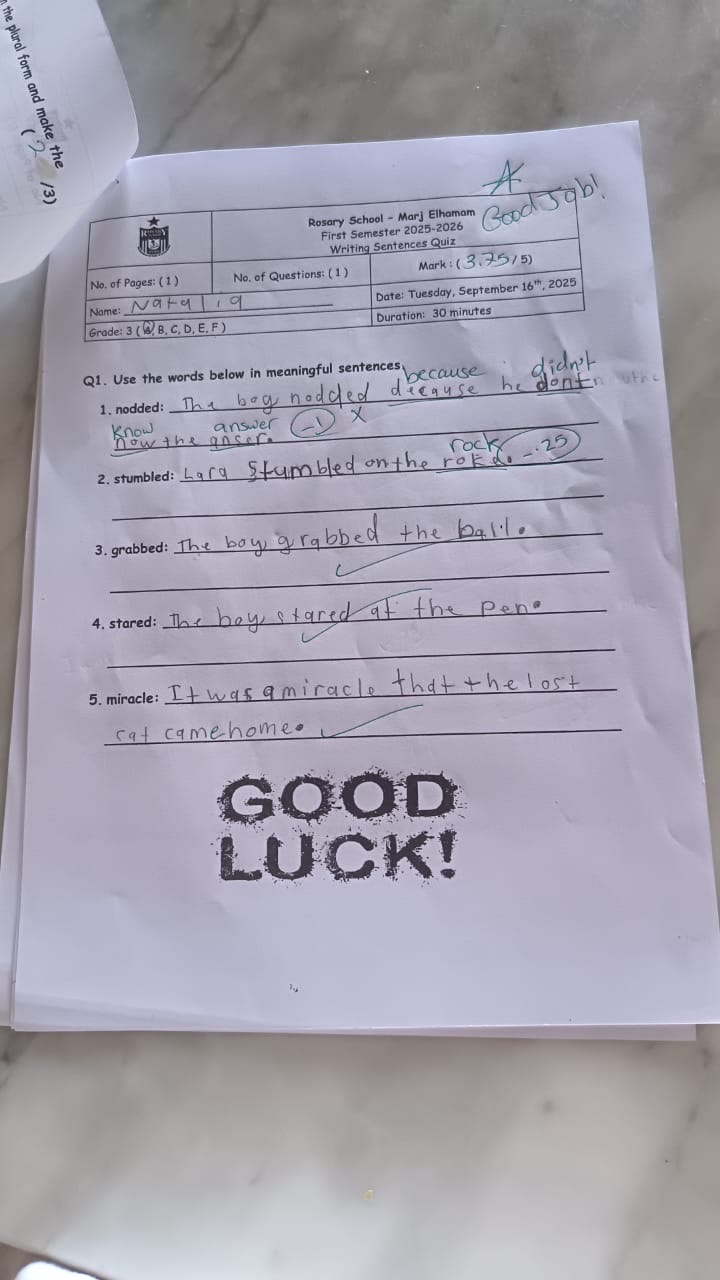 n the plural form and make the
(2 /3)
A
Good Job!
Rosary School - Marj Elhamam
First Semester 2025-2026
Writing Sentences Quiz
No. of Pages: (1)
No. of Questions: (1)
Mark: (3.75/5)
Name: Natalia
Date: Tuesday, September 16th, 2025
Grade: 3 (A, B, C, D, E, F)
Duration: 30 minutes
Q1. Use the words below in meaningful sentences.
because didn't
1. nodded: The boy nodded decause he dont
know answer -1 X
now the anser.
rock -.25
2. stumbled: Lara stumbled on the rok
3. grabbed: The boy grabbed the ball.
4. stared: The boy stared at the pen.
5. miracle: It was a miracle that the lost
cat came home.
GOOD
LUCK!